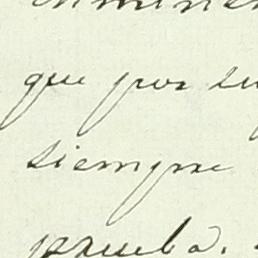 que por su
siempre
prueba.